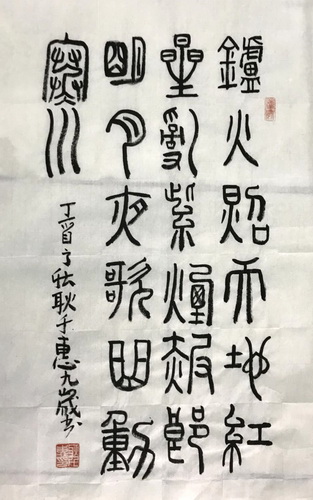 鑪火照天地紅
星亂紫煙赧郎
明月夜歌曲動
寒川
丁酉秋耿千惠九歲書